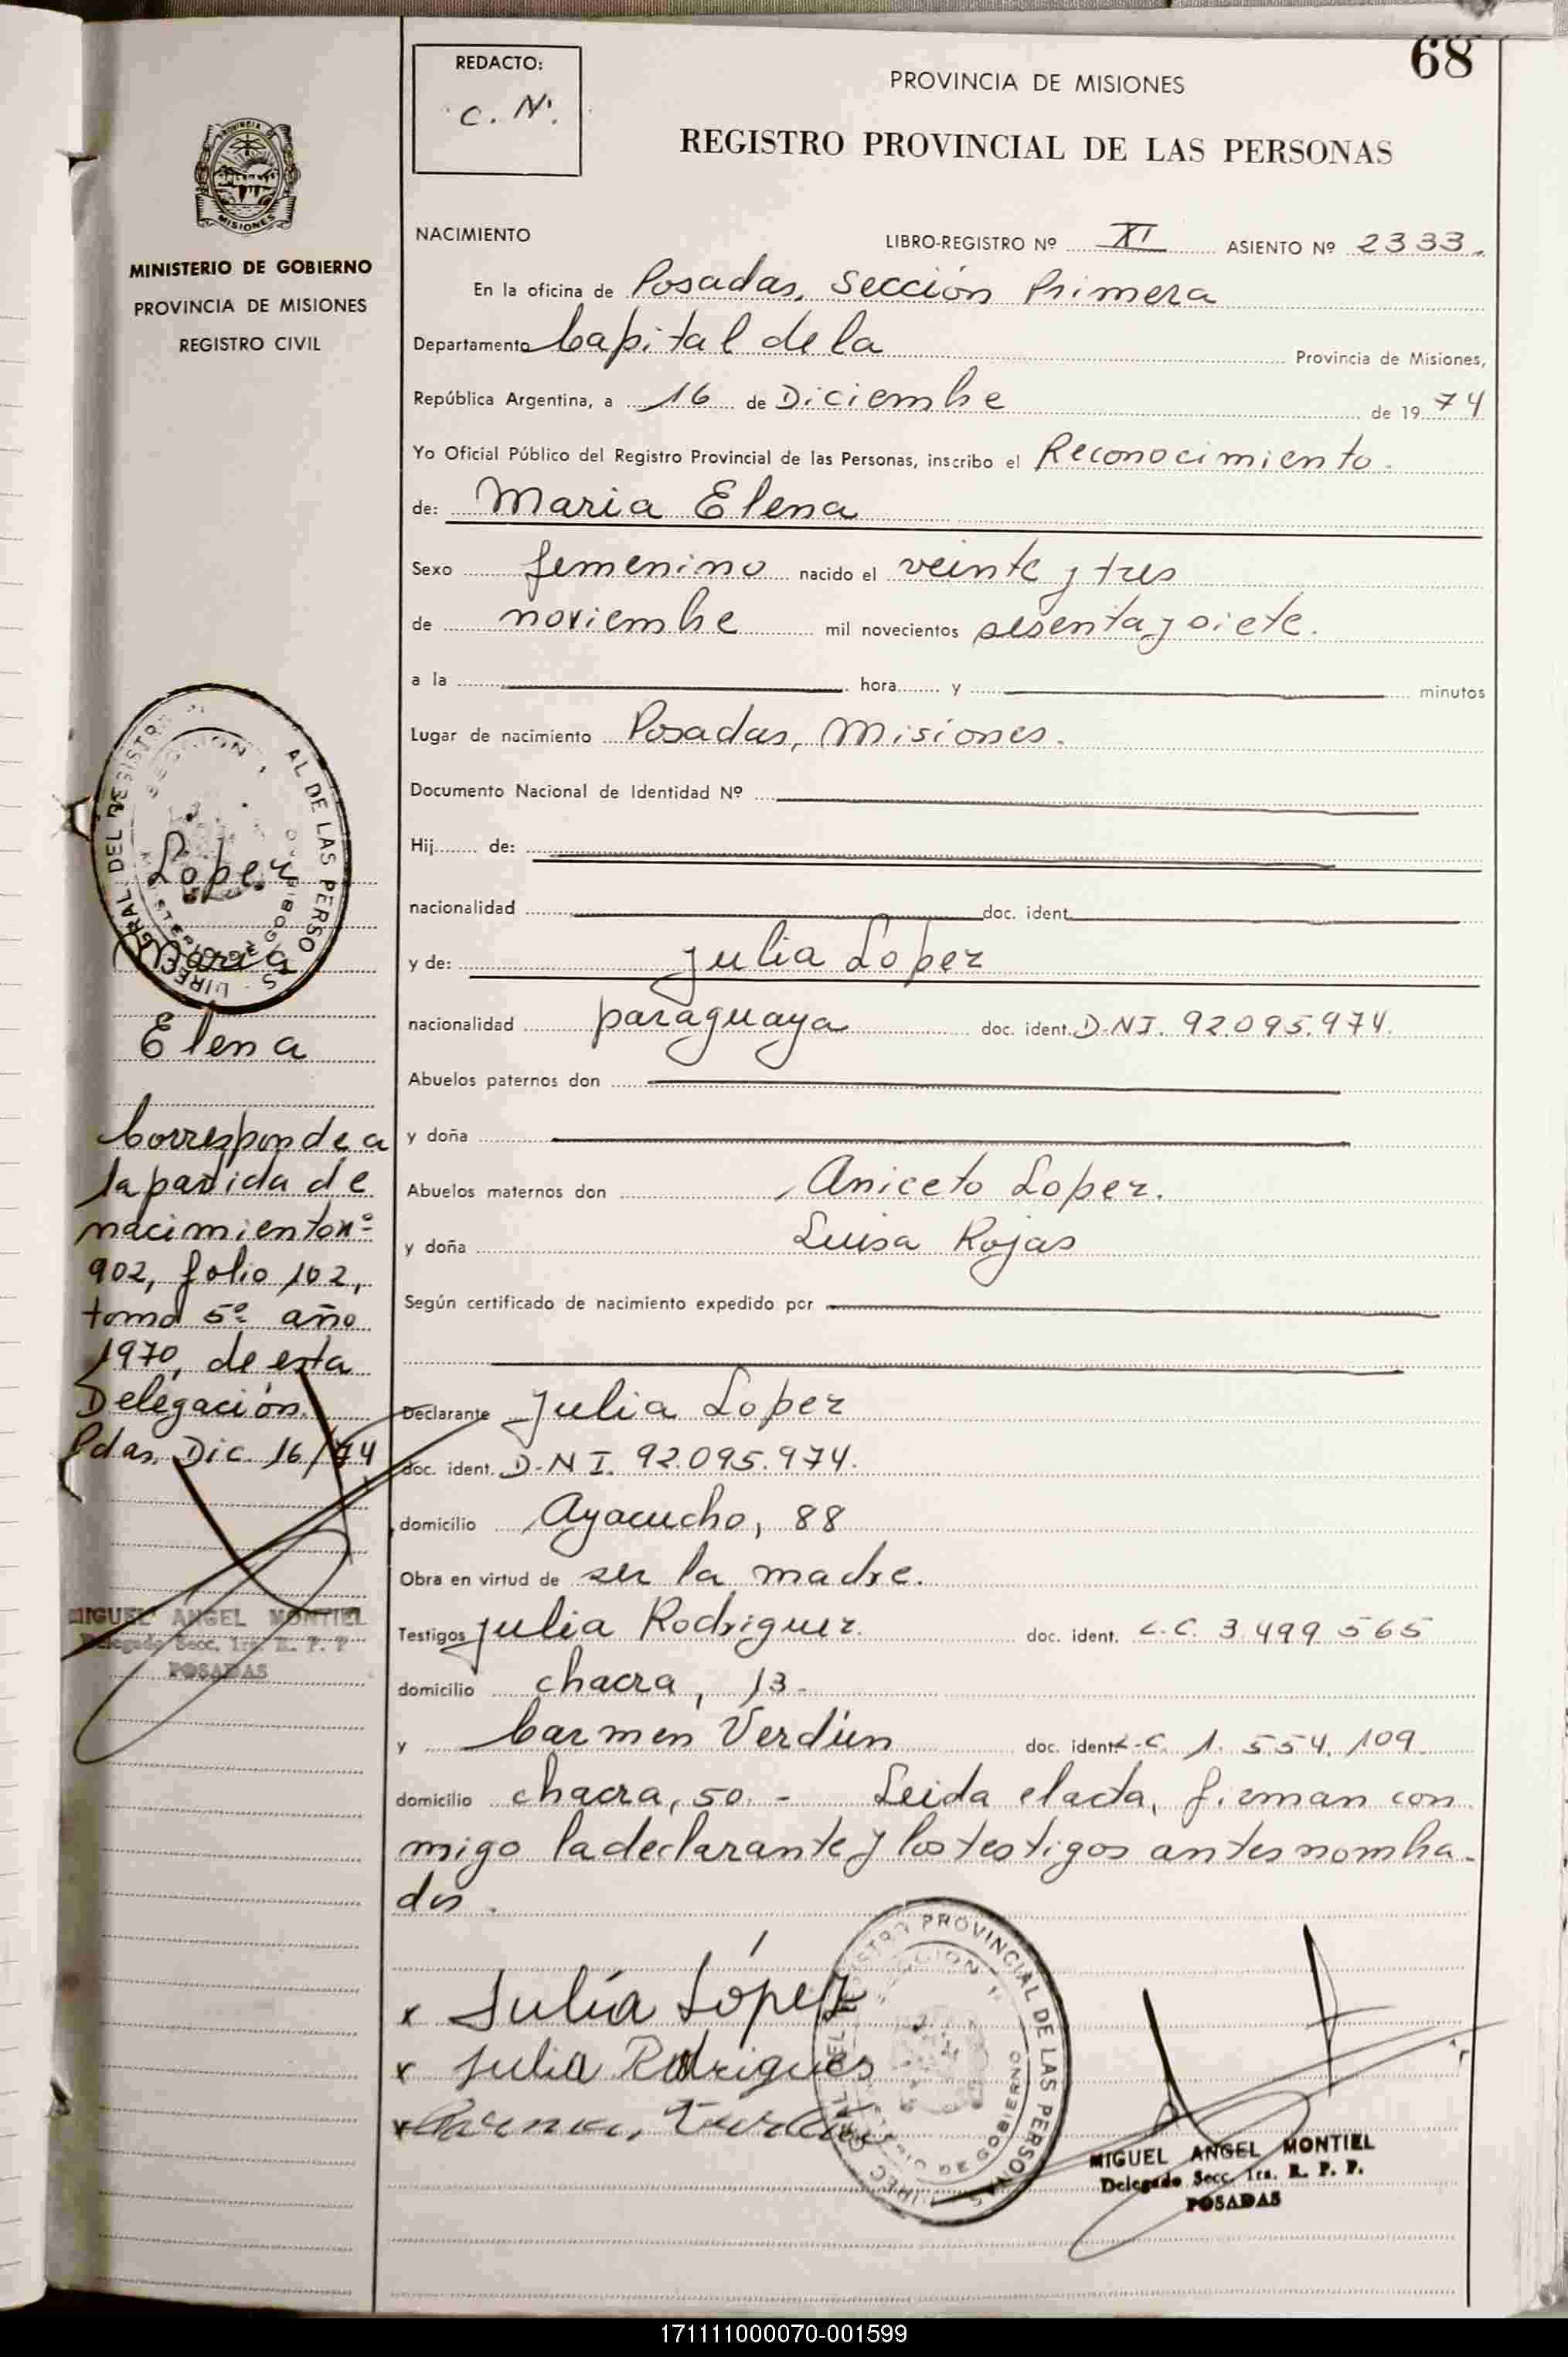 68
REDACTO:
C. N.
PROVINCIA DE MISIONES
REGISTRO PROVINCIAL DE LAS PERSONAS
MISIONES
MINISTERIO DE GOBIERNO
PROVINCIA DE MISIONES
REGISTRO CIVIL
NACIMIENTO LIBRO-REGISTRO Nº XI ASIENTO Nº 2333.
En la oficina de Posadas, Sección Primera
Departamento Capital de la Provincia de Misiones,
República Argentina, a 16 de Diciembre de 19 74
Yo Oficial Público del Registro Provincial de las Personas, inscribo el Reconocimiento.
de: Maria Elena
Sexo femenino nacido el veinte y tres
de noviembre mil novecientos sesenta y siete.
a la hora y minutos
Lugar de nacimiento Posadas, Misiones.
Documento Nacional de Identidad Nº
Hij de:
nacionalidad doc. ident.
y de: Julia Lopez
nacionalidad paraguaya doc. ident. D.N.I. 92.095.974.
Abuelos paternos don
y doña
Abuelos maternos don Aniceto Lopez.
y doña Luisa Rojas
Según certificado de nacimiento expedido por
Declarante Julia Lopez
doc. ident. D.N.I. 92.095.974.
domicilio Ayacucho, 88
Obra en virtud de ser la madre.
Testigos Julia Rodriguez. doc. ident. L.C. 3.499.565
domicilio chacra, 13.
y Carmen Verdún doc. ident. L.C. 1.554.109
domicilio chacra, 50. - Leida el acta, firman con
migo la declarante y los testigos antes nombra-
dos.
x Julia López
x Julia Rodrigues
x Carmen Verdun
MIGUEL ANGEL MONTIEL
Delegado Secc. 1ra. R. P. P.
POSADAS
Lopez
Maria
Elena
Corresponde a
la partida de
nacimiento nº
902, folio 102,
tomo 5º año
1970, de esta
Delegación.
Pdas. Dic. 16/74
MIGUEL ANGEL MONTIEL
Delegado Secc. 1ra. R. P. P.
POSADAS
171111000070-001599